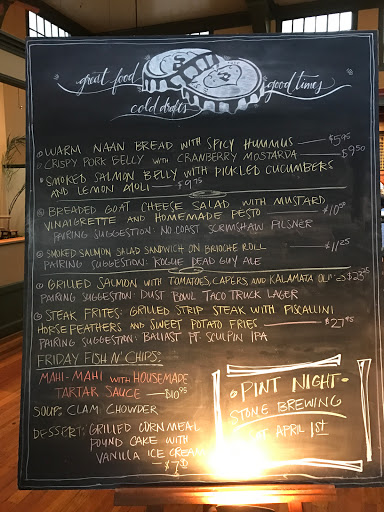 great food
good times
cold drafts
WARM NAAN BREAD WITH SPICY HUMMUS — $5.95
CRISPY PORK BELLY WITH CRANBERRY MOSTARDA — $9.50
SMOKED SALMON BELLY WITH PICKLED CUCUMBERS
AND LEMON AIOLI — $9.75
BREADED GOAT CHEESE SALAD WITH MUSTARD
VINAIGRETTE AND HOMEMADE PESTO — $10.50
PAIRING SUGGESTION: NO COAST SCRIMSHAW PILSNER
SMOKED SALMON SALAD SANDWICH ON BRIOCHE ROLL — $11.25
PAIRING SUGGESTION: ROGUE DEAD GUY ALE
GRILLED SALMON WITH TOMATOES, CAPERS, AND KALAMATA
PAIRING SUGGESTION: DUST BOWL TACO TRUCK LAGER
STEAK FRITES: GRILLED STRIP STEAK WITH PISCALLINI
HORSEFEATHERS AND SWEET POTATO FRIES — $27.95
PAIRING SUGGESTION: BALLAST PT SCULPIN IPA
FRIDAY FISH N' CHIPS:
MAHI-MAHI WITH HOUSEMADE
TARTAR SAUCE — $10.95
SOUP: CLAM CHOWDER
DESSERT: GRILLED CORNMEAL
POUND CAKE WITH
VANILLA ICE CREAM
PINT NIGHT
STONE BREWING
APRIL 1ST